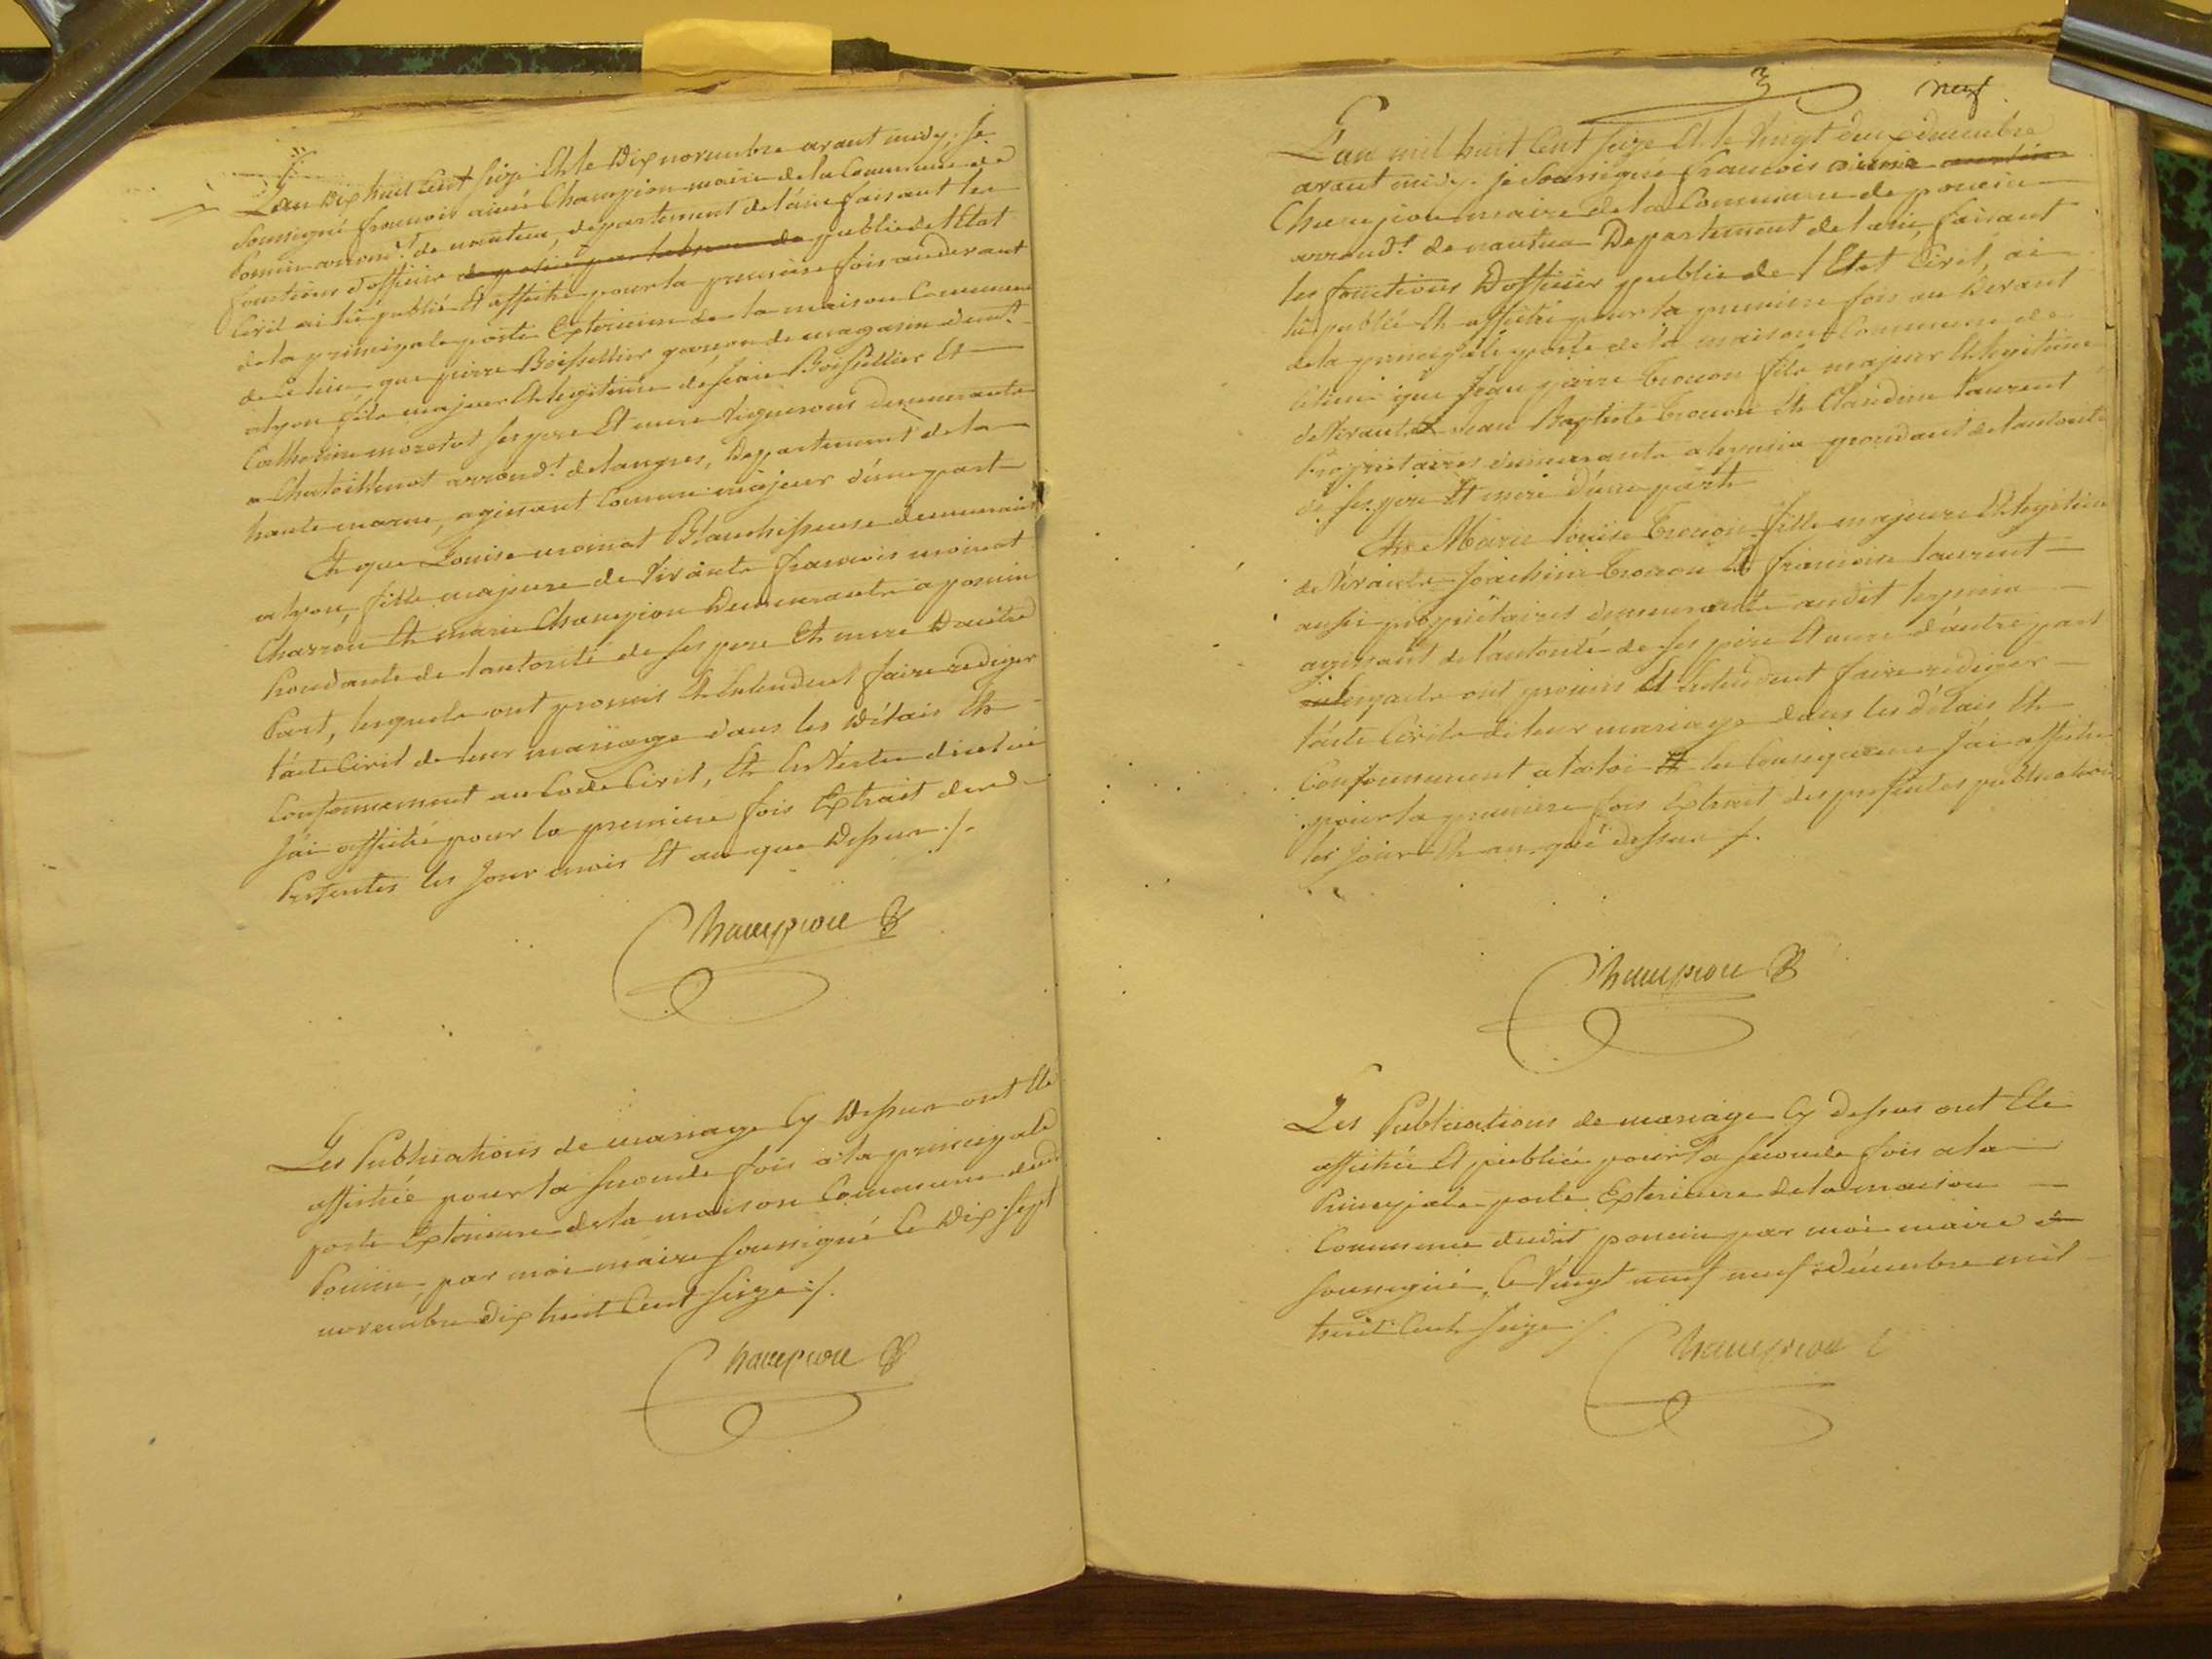 L'an Dix huit Cent seize Et le Dix novembre avant midy, Je
soussigné françois aimé Champion maire de la Commune de
Poncin arrond.t de nantua, département de l'ain faisant les
fonctions d'officier de public de l'Etat
Civil ai lu publié Et affiché pour la premiere fois audevant
de la principale porte Exterieure de la maison Commune
de ce lieu, que pierre Boissellier garcon de magasin demt.
a lyon fils majeur Et legitime de Jean Boissellier Et
Catherine moretot ses pere Et mere vignerons demeurants
a Chatoillenot arrond.t de langres, Departement de la
haute marne, agissant Comme majeur d'une part
Et que Louise moinat Blanchisseuse demeurant
a lyon, fille majeure de vivants francois moinat
Charron Et marie Champion Demeurants a poncin
Proudante de l'autorité de ses pere Et mere D'autre
Part, lesquels ont promis Et Entendent faire rediger
l'acte Civil de leur mariage dans les Délais Et
Conformement au Code Civil, Et En vertu dicelui
J'ai affiché pour la premiere fois Extrait des d.
Presentes les Jour mois Et an que Dessus ./.
Champion
Les Publications de mariage Cy Dessus ont Eté
affichée pour la seconde fois a la principale
porte Exterieure de la maison Commune dud.
Poncin, par moi maire soussigné Ce Dix sept
novembre Dix huit Cent seize ./.
Champion
3 neuf
L'an mil huit Cent seize Et le Vingt deux décembre
avant midy. je soussigné francois aimé
Champion maire de la Commune de poncin
arrond.t de nantua Departement de l'ain, faisant
les fonctions D'officier public de l'Etat Civil, ai
lu publié Et affiché pour la premiere fois au Devant
de la principale porte de la maison Commune de
ce lieu que Jean pierre Trocon fils majeur Et legitime
de Vivants Jean Baptiste Trocon Et Claudine laurent
Propriétaires demeurants a leymia proudant de l'autorité
de ses pere Et mere d'une part
Et Marie louise Trocon fille majeure Et legitime
de Vivants Joachim Trocon Et francoise laurent
aussi propriétaires demeurants audit leymia
agissant de l'autorité de ses pere Et mere d'autre part
Lesquels ont promis Et Entendent faire rediger
l'acte Civil de leur mariage dans les délais Et
Conformement a la loi En Consequence J'ai affiché
pour la premiere fois Extrait des presentes publications
les jour Et an que dessus ./.
Champion
Les Publications de mariage Cy dessus ont Eté
affichée Et publiée pour la seconde fois a la
Principale porte Exterieure de la maison
Commune dudit poncin par moi maire
soussigné, Ce Vingt neuf neuf décembre mil
huit Cent seize ./.
Champion